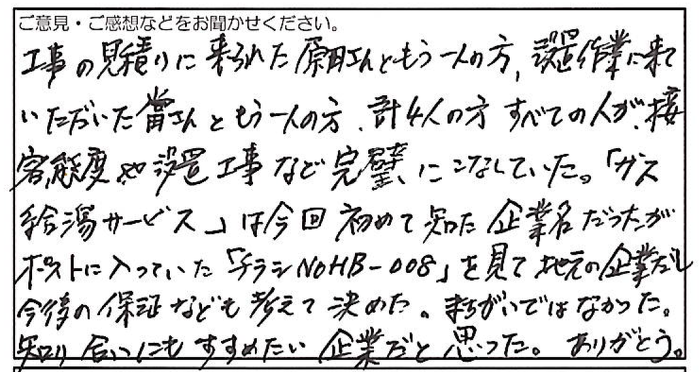 ご意見・ご感想などをお聞かせください。
工事の見積りに来られた原田さんともう一人の方、設置作業に来て
いただいた當さんともう一人の方、計4人の方すべての人が、接
客態度や設置工事など完璧にこなしていた。「ガス
給湯サービス」は今回初めて知た企業名だったが
ポストに入っていた「チラシNOHB-008」を見て地元の企業だし
今後の保証なども考えて決めた。まちがいではなかった。
知り合いにもすすめたい企業だと思った。ありがとう。